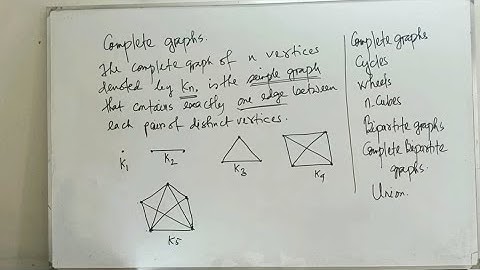 Complete graphs.
The complete graph of n vertices
denoted by Kn, is the simple graph
that contains exactly one edge between
each pair of distinct vertices.
K1
K2
K3
K4
K5
Complete graphs
Cycles
Wheels
n-Cubes
Bipartite graphs
Complete Bipartite
graphs.
Union.